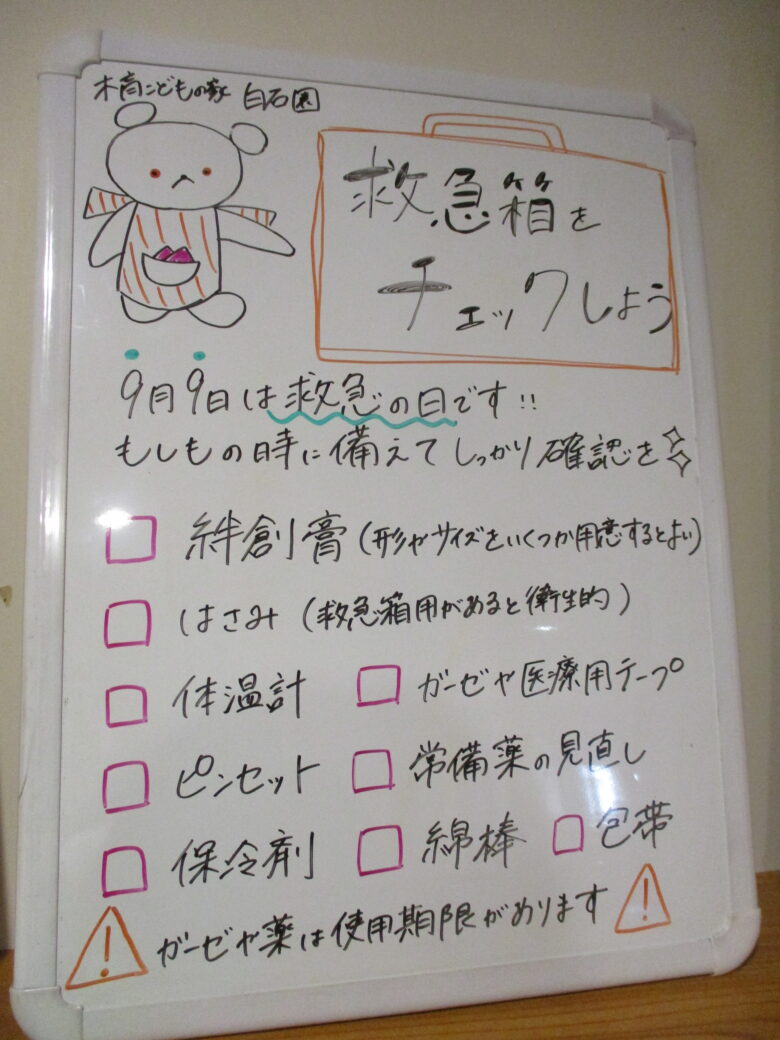 木育こどもの家 白石園
救急箱を
チェックしよう
9月9日は救急の日です!!
もしもの時に備えてしっかり確認を
絆創膏(形やサイズをいくつか用意するとよい)
はさみ(救急箱用があると衛生的)
体温計 ガーゼや医療用テープ
ピンセット 常備薬の見直し
保冷剤 綿棒 包帯
ガーゼや薬は使用期限があります